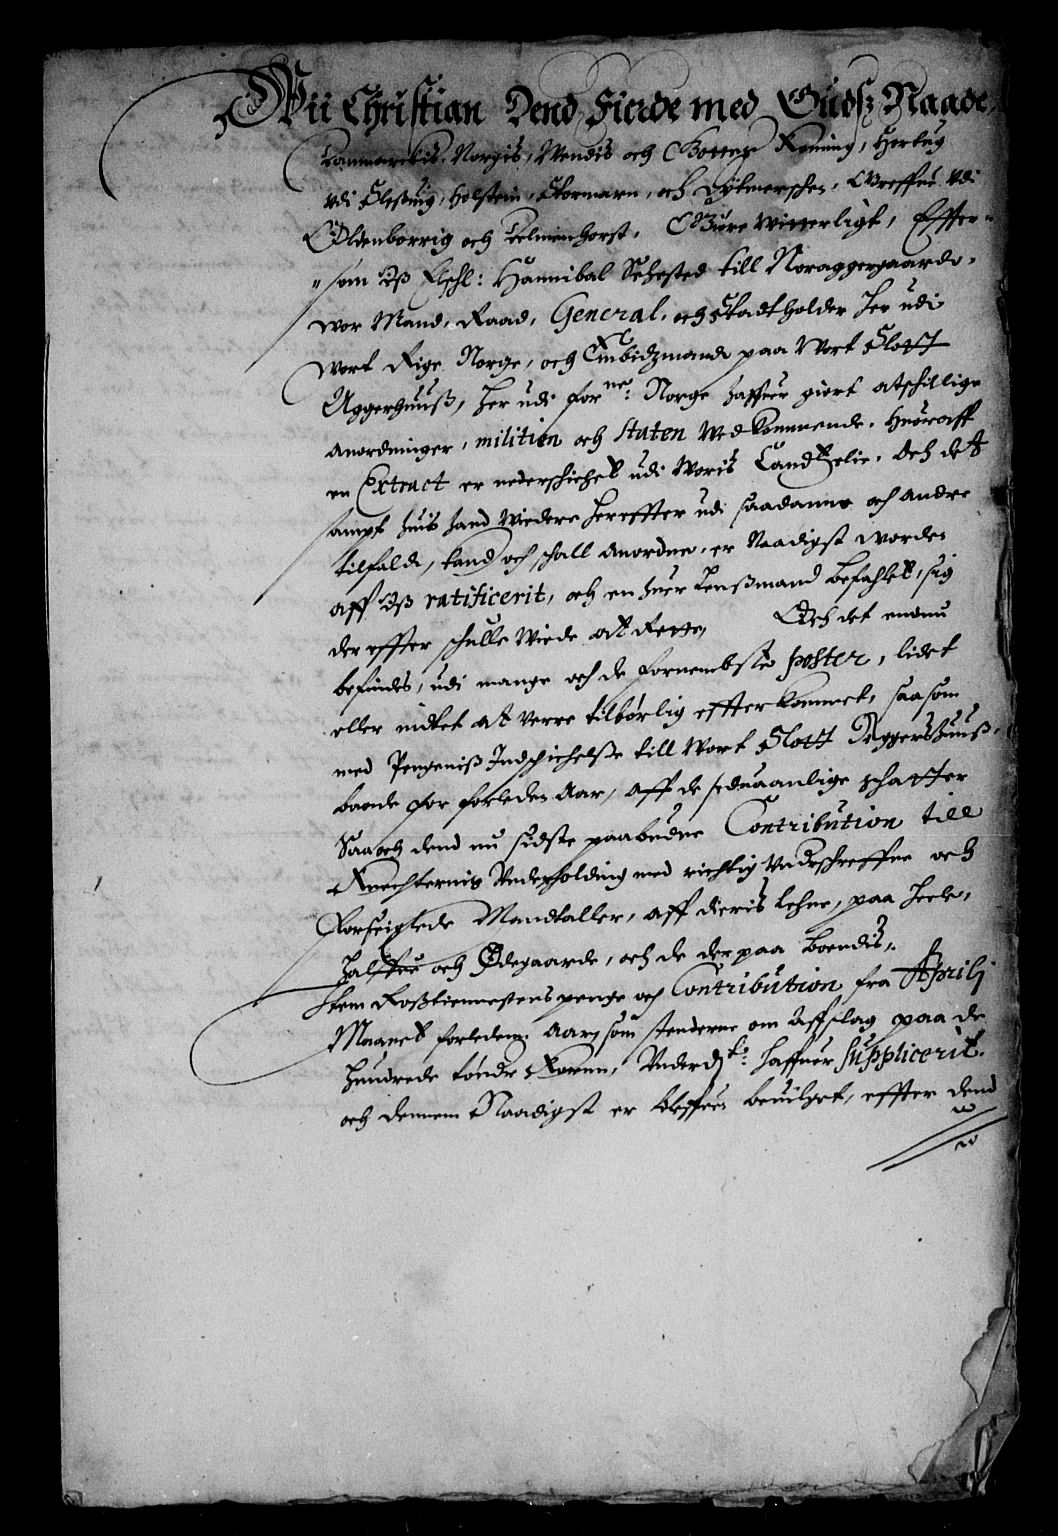 Wii Christian Dend Fierde med Gudsz Naade,
Danmarckis, Norgis, Wendis och Gottes Konning, Hertug
vdi Sleßuig, Holstein, Stormarn, och Dytmerschen, Greffue vdi
Oldenborrig och Delmenhorst, Giøre Witterligt, Effter-
som Oß Elschl: Hannibal Sehested till Noraggergaardt,
wor Mand, Raad, General, och Stadtholder her udi
wort Rige Norge, och Embidzmand paa Wort Slott
Aggerhuuß, her udi forne: Norge haffuer giort atschillige
anordninger, militien och staten Wedkommende, huoraff
en Extract er nederschichet udi Woris Candtzelie, Och dett
sampt huis hand Widere herefter udi saadanne och andre
tilfald, kand och schall anordne, er Naadigst worden
aff Oß ratificerit, och en huer Lenßmand befahlet, sig
der effter schulle Wiede at Rette, Och det endnu
befindes, udi mange och de fornembste poster, lidet
eller intet at Verre tilbørlig effterkommet, saasom
med Pengenis Indschichelse till Wort Slott Aggershuuß,
baade for forleden Aar, aff de seduaanlige schatter
Saa och dend nu sidste paabudne Contribution till
Knechternis Vnderholding med richtig Vnderschreffne och
Forseiglede Mandtaller, aff dieris Lehne, paa heele,
halffue och Ødegaarde, och de der paa boendis,
Item Roßtiennestens penge och Contribution fra Aprilj
Maanet forleden Aar, som stenderne om Affslag paa de
hundrede tønde Korn, Vnderdte: haffuer suppliceret,
och dennem Naadigst er bleffuen beuilget, effter dend